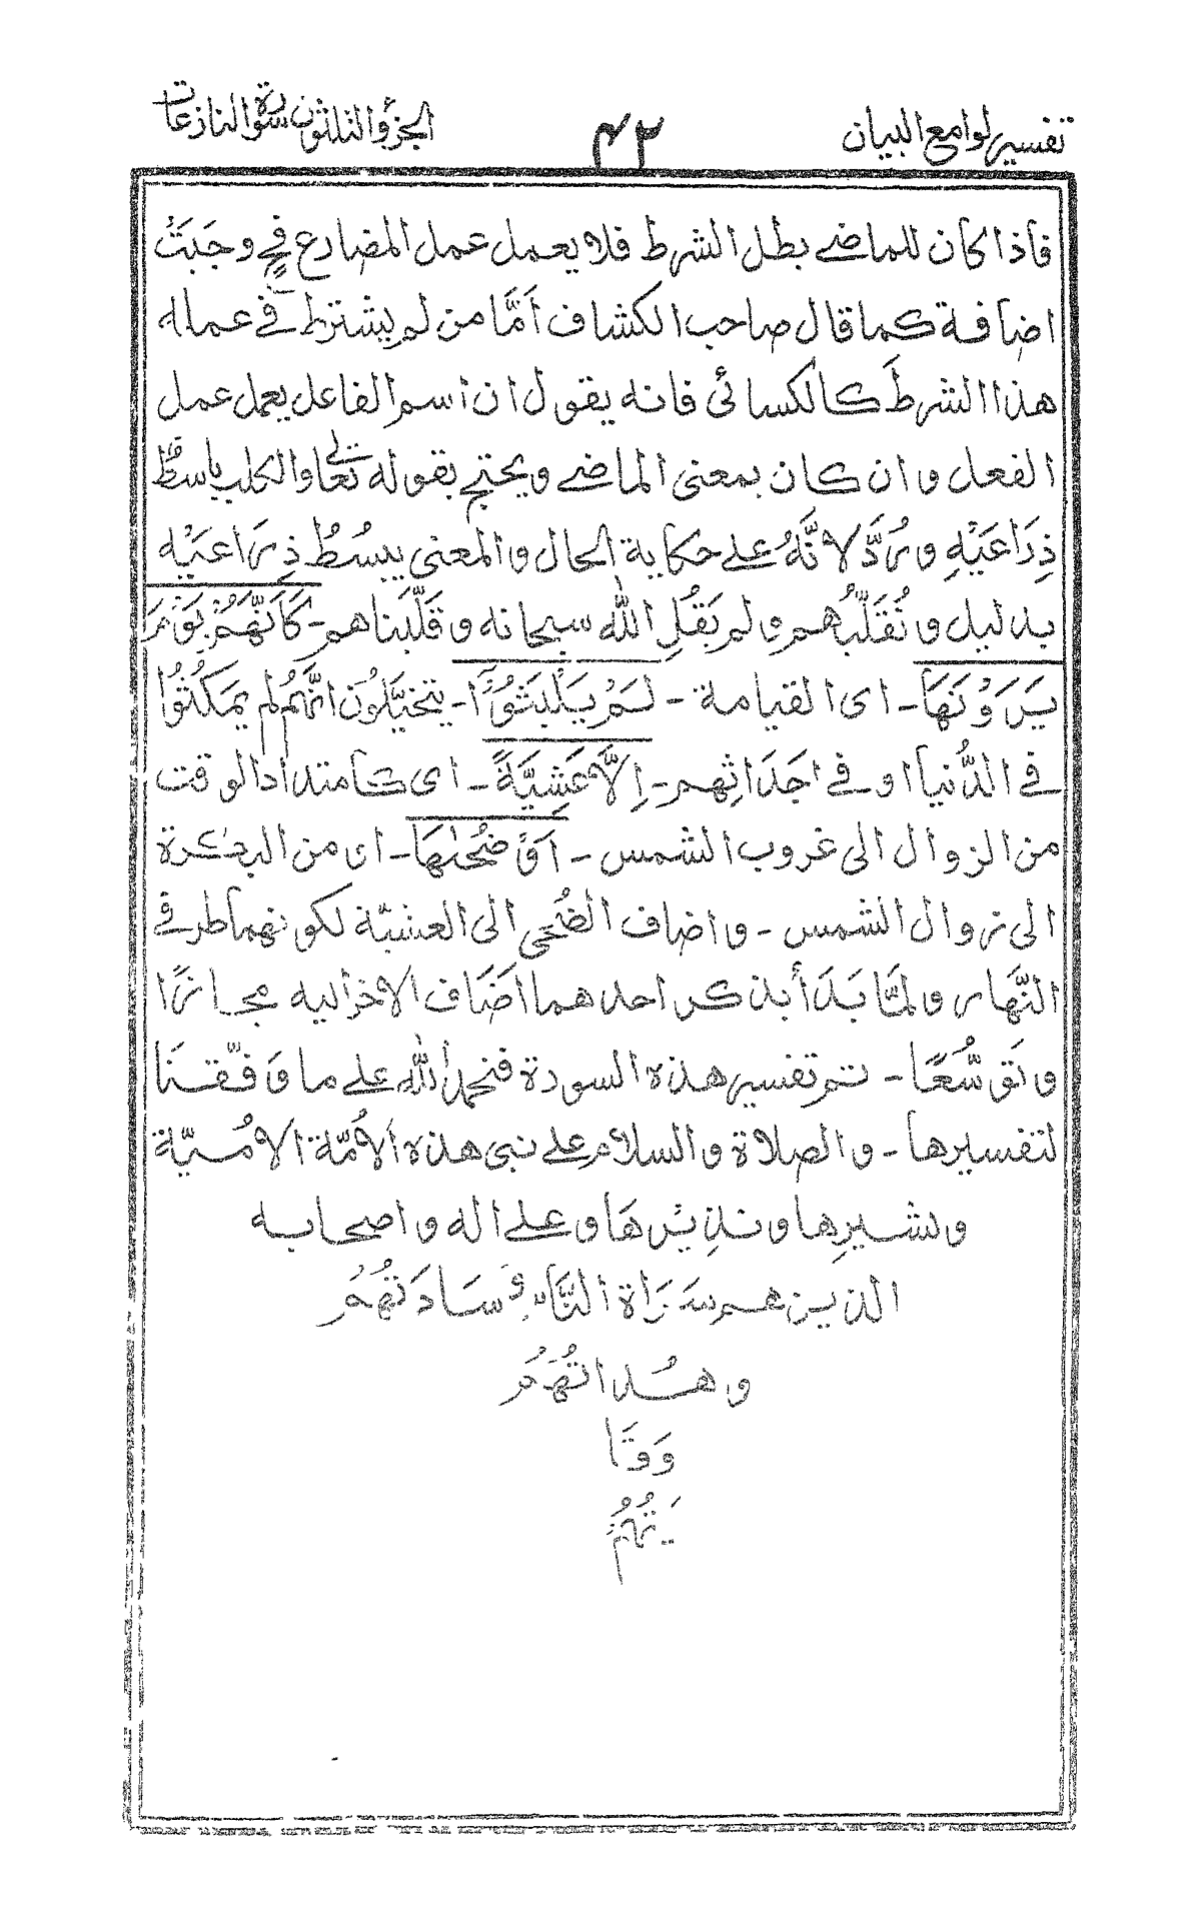 تفسير لوامع البيان ٤٢ الجزء و الثلثون سورة النازعات
فاذا كان للماضي بطل الشرط فلا يعمل عمل المضارع فحٍ وجبَتْ
اضافة كما قال صاحب الكشاف اَمَّا من لم يشترط في عمله
هذا الشرطَ كالكسائى فانه يقول ان اسم الفاعل يعمل عمل
الفعل و ان كان بمعنى الماضي ويحتج بقوله تعالى والكلب باسطٌ
ذِرَاعَيْهِ و رُدَّ لانَّهُ على حكاية الحال والمعنى يبسُطُ ذِرَاعَيْه
بدليل و نُقَلِّبُهم و لم يَقُلِ اللّٰه سبحانه و قَلَّبْناهم - كَأَنَّهُمْ يَوْمَ
يَرَوْنَهَا - اى القيامة - لَمْ يَلْبَثُوْٓا - يتخيَّلُون انَّهُمْ لم يمكُثُوْا
في الدُّنيا او في اجدَاثِهم - اِلاَّ عَشِيَّةً - اى كامتداد الوقت
من الزوال الى غروب الشمس - اَوْ ضُحٰىهَا - اى من البكرة
الى زوال الشمس - و اضاف الضُحٰى الى العشيّة لكونهما طرفي
النَّهار و لمَّا بَدَأ بذكر احدهما اضَاف الاٰخر اليه مجازًا
و تَوَسُّعًا - تم تفسير هذه السورة فنحمد اللّٰه على ما وَفَّقَنَا
لتفسيرها - والصلاة والسلام على نبى هذه الاُمّة الاُمّيّة
و بشيرِها و نذِيْرِهَا و على اله و اصحابه
الذين هم سَرَاة النَّاس و سَادَتُهُمْ
و هُداتُهُمْ
وَ وَقَا
يَتُهُمْ